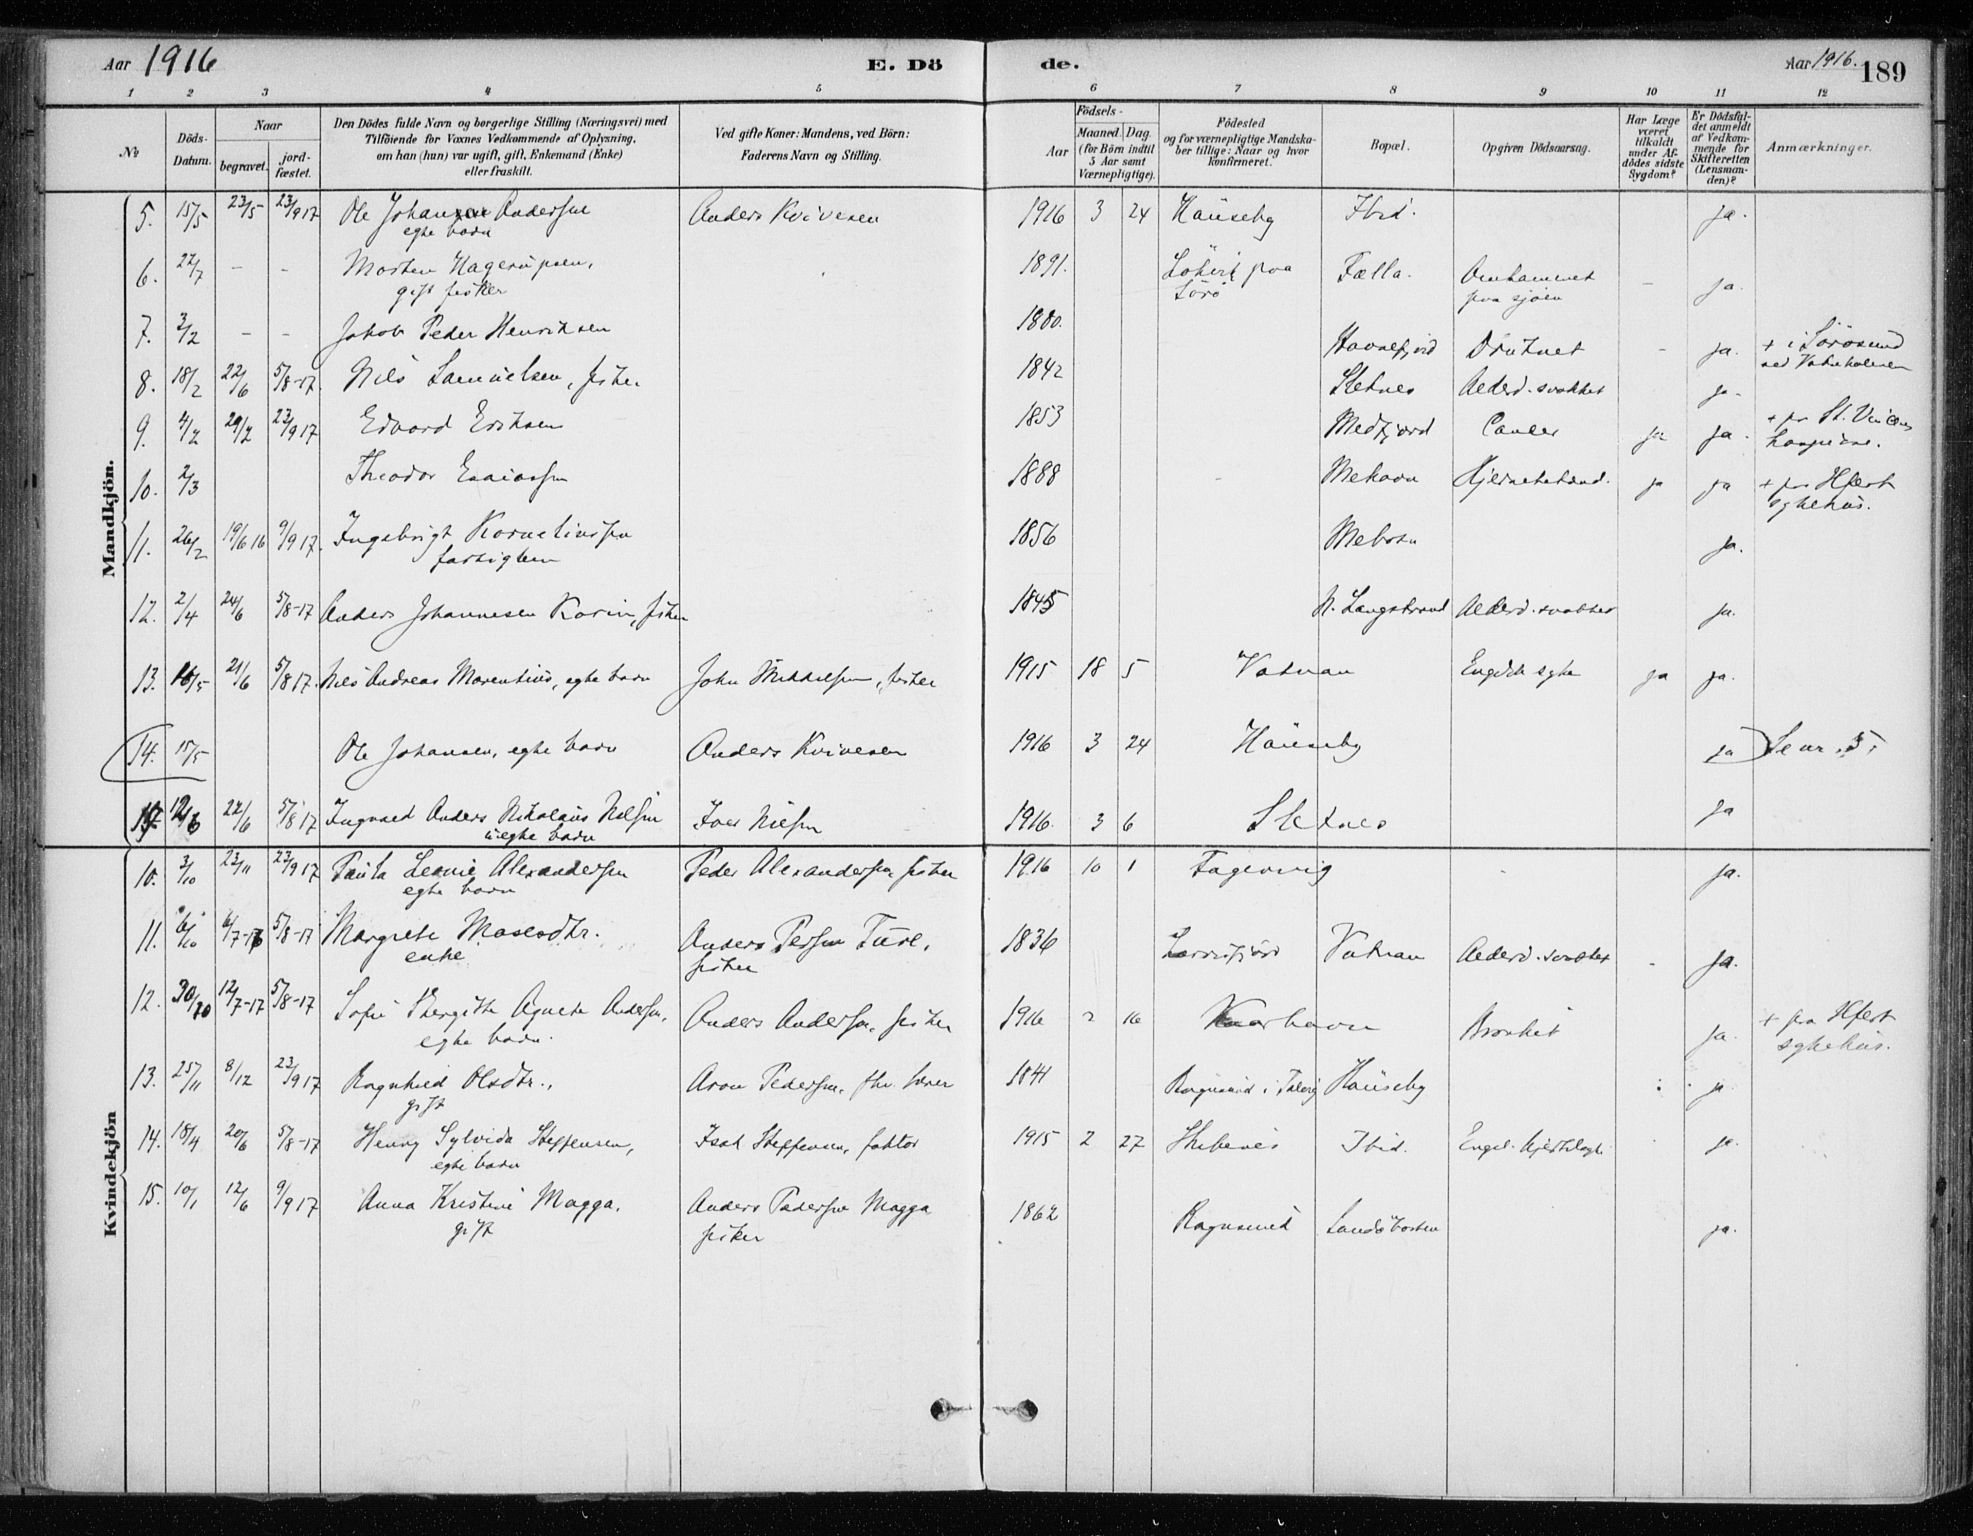 Aar 1916 E. Dö de. Aar 1916. 189
1 2 3 4 5 6 7 8 9 10 11 12
№ Döds-Datum. Naar begravet. jord-fæstet.
Den Dödes fulde Navn og borgerlige Stilling (Næringsvei) med
Tilföiende for Voxnes Vedkommende af Oplysning,
om han (hun) var ugift, gift, Enkemand (Enke)
eller fraskilt.
Ved gifte Koner: Mandens, ved Börn:
Faderens Navn og Stilling.
Födsels-
Aar Maaned. Dag.
(for Börn indtil
5 Aar samt
Værnepligtige).
Födested
og for værnepligtige Mandska-
ber tillige: Naar og hvor
konfirmeret.
Bopæl.
Opgiven Dödsaarsag.
Har Læge
været
tilkaldt
under Af-
dödes sidste
Sygdom?
Er Dödsfal-
det anmeldt
af Vedkom-
mende for
Skifteretten
(Lensman-
den)?
Anmærkninger.
Mandkjön.
5. 15/5 23/5 23/9 17 Ole Johansen Andersen Anders Kvivesen 1916 3 24 Hauseby Ibid. ja.
egte barn
6. 22/7 - - Morten Hagerupsen, 1891. på Fælla. Omkommet - ja.
gift fisker Sörö paa sjöen
7. 3/2 - - Jakob Peder Henriksen 1880. Havnefjord Druknet - ja. + i Sörösund
ved
8. 18/2 22/6 5/8-17 Nils Samuelsen, fisker 1842 Sletnes Alderd.svakket ja.
9. 4/2 29/2 23/9 17 Edvard Eriksen 1853 Medfjord Cancer ja ja. + på St. Vincens
hospital.
10. 2/3 Theodor Esaiassen 1888 Mehavn ja ja + på Hfest
sykehus.
11. 26/2 19/6 16 9/9 17. Ingebrigt Korneliussen 1856 ja.
fattiglem
12. 2/4 24/6 5/8-17 Anders Johannesen Korin, fisker 1845 N. Langstrand Alderd.svakket ja.
13. 16/5 21/6 5/8 17. Nils Andreas Morentius, egte barn John Mikkelsen, fisker 1915 18 5 Vatnan Engelsk syke ja ja.
14. 15/5 Ole Johansen, egte barn Anders Kvivesen 1916 3 24 Hauseby ja Se nr. 5.
22/6 5/8 17 Ingvald Anders Nikolaus Nilsen Iver Nilsen 1916. 3 6 Sletnes ja
uegte barn
Kvindekjön
10. 3/10 23/11 23/9 17 Paula Leonie Alexandersen Peder Alexandersen fisker 1916 10 1 Fagervig ja.
egte barn
11. 6/10 6/7-16 5/8-17 Margrete Mosesdtr. Anders Persen Ture, 1836 Vatnan Alderd.svakket - ja.
enke fisker
12. 30/10 12/7-17 5/8-17 Sofie Bergitte Agnete Andersen, Anders Andersen, fisker 1916 2 16 Kaarhavn Bronkit ja. + paa Hfest
egte barn. sykehus.
13. 25/11 8/12 23/9 17 Ragnhild Olsdtr., Aron Pedersen, fhv. lærer 1841 Rognsund i Talvig Hauseby ja
gift
14. 18/4 20/6 5/8-17 Henny Sylvida Steffensen, Isak Steffensen, faktor 1915 2 27 Ibid. ja.
egte barn
15. 10/1 12/6 9/9 17 Anna Kristine Magga. Anders Pedersen Magga 1862 Rognsund ja.
gift fisker